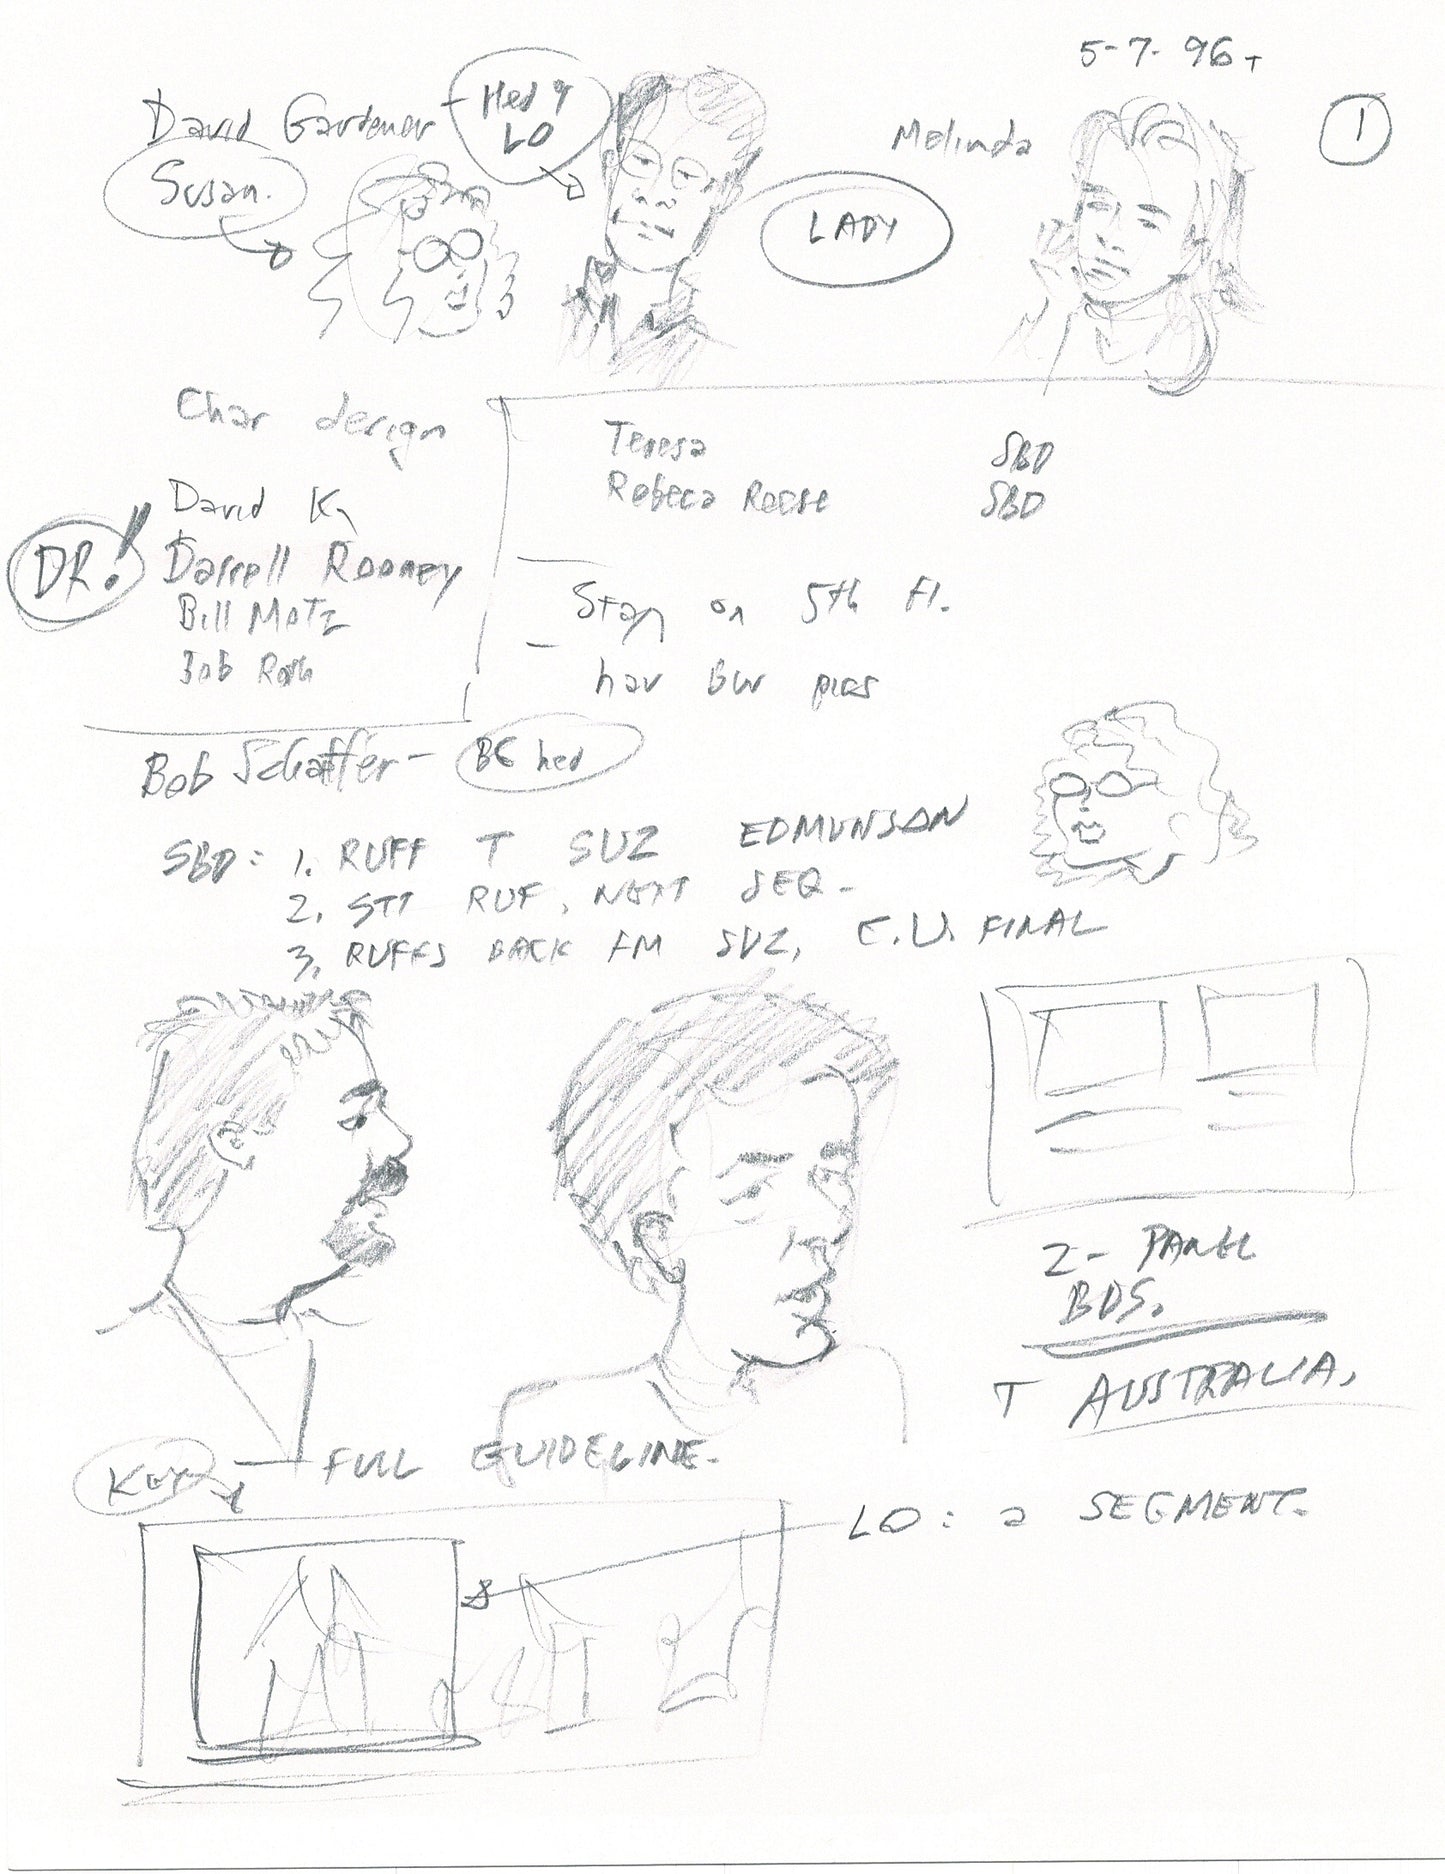 5-7-96
1
David Gardener - Hed of
LO
Susan.
Melinda
LADY
Char design
David K
DR! Darrell Rooney
Bill Motz
Bob Roth
Teresa SBD
Rebeca Reese SBD
Stay on 5th Fl.
hav BW pics
Bob Schaffer - BG hed
SBD: 1. RUFF T SUZ EDMUNSON
2. STT RUF, NEXT SEQ-
3. RUFFS BACK FM SUZ, C.U. FINAL
2- PANEL
BDS.
T AUSTRALIA.
KEY - FULL GUIDELINE.
LO: a SEGMENT.